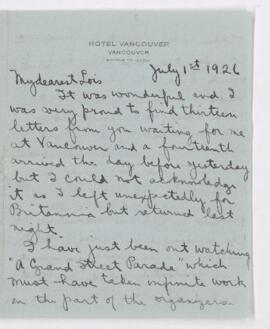 HOTEL VANCOUVER
VANCOUVER
July 1st 1926
My dearest Lois
It was wonderful and I
was very proud to find thirteen
letters from you waiting for me
at Vancouver and a fourteenth
arrived the day before yesterday
but I could not acknowledge
it as I left unexpectedly for
Britannia but returned last
night.
I have just been out watching
"A Grand Street Parade" which
must have taken infinite work
on the part of the organizers.